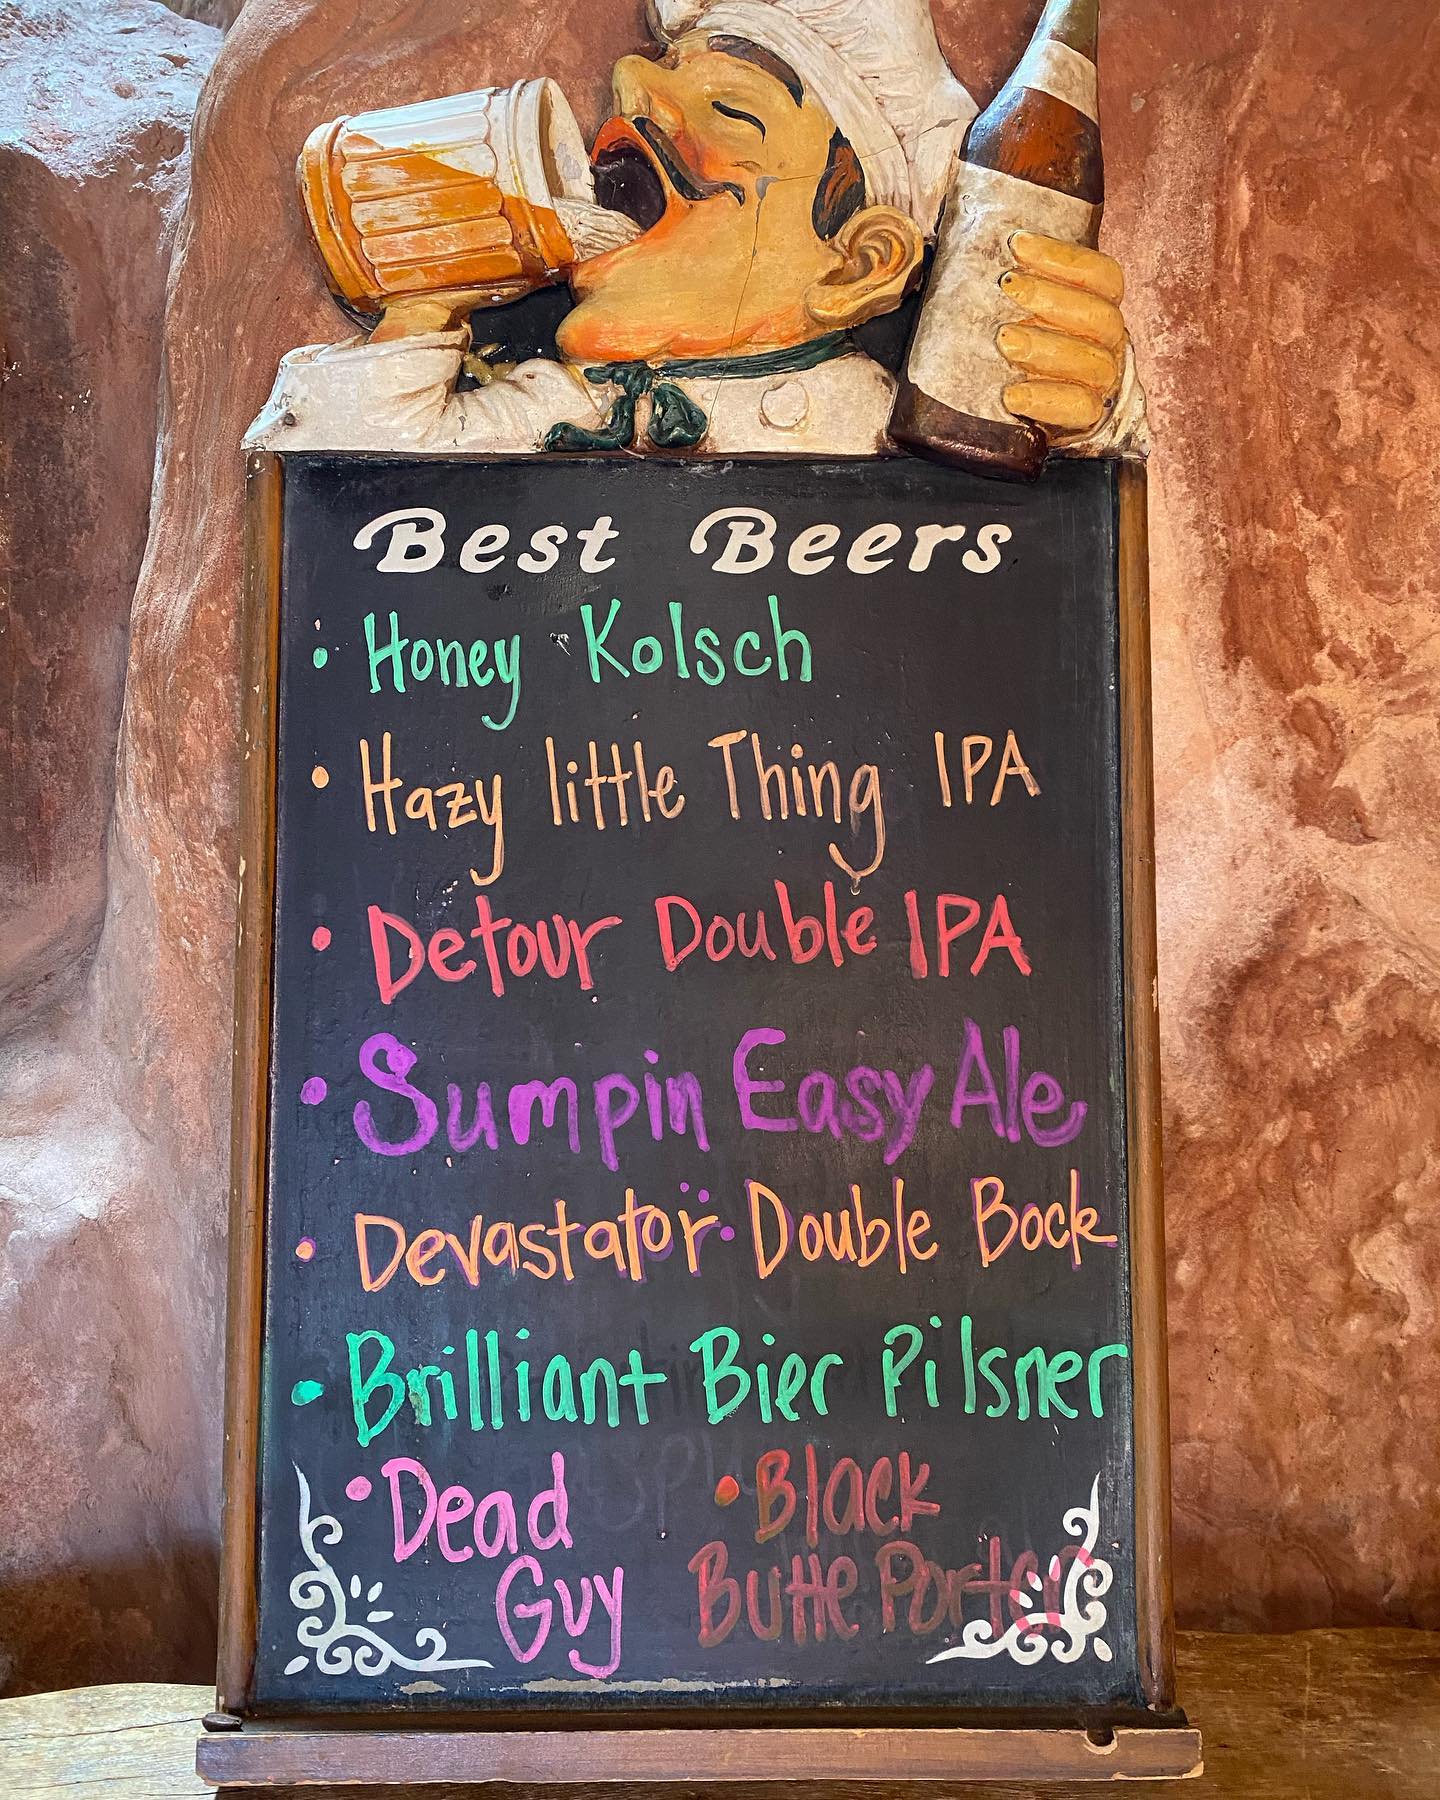 Best Beers
• Honey Kolsch
• Hazy little Thing IPA
• Detour Double IPA
• Sumpin Easy Ale
• Devastator Double Bock
• Brilliant Bier Pilsner
• Dead Guy
• Black Butte Porter